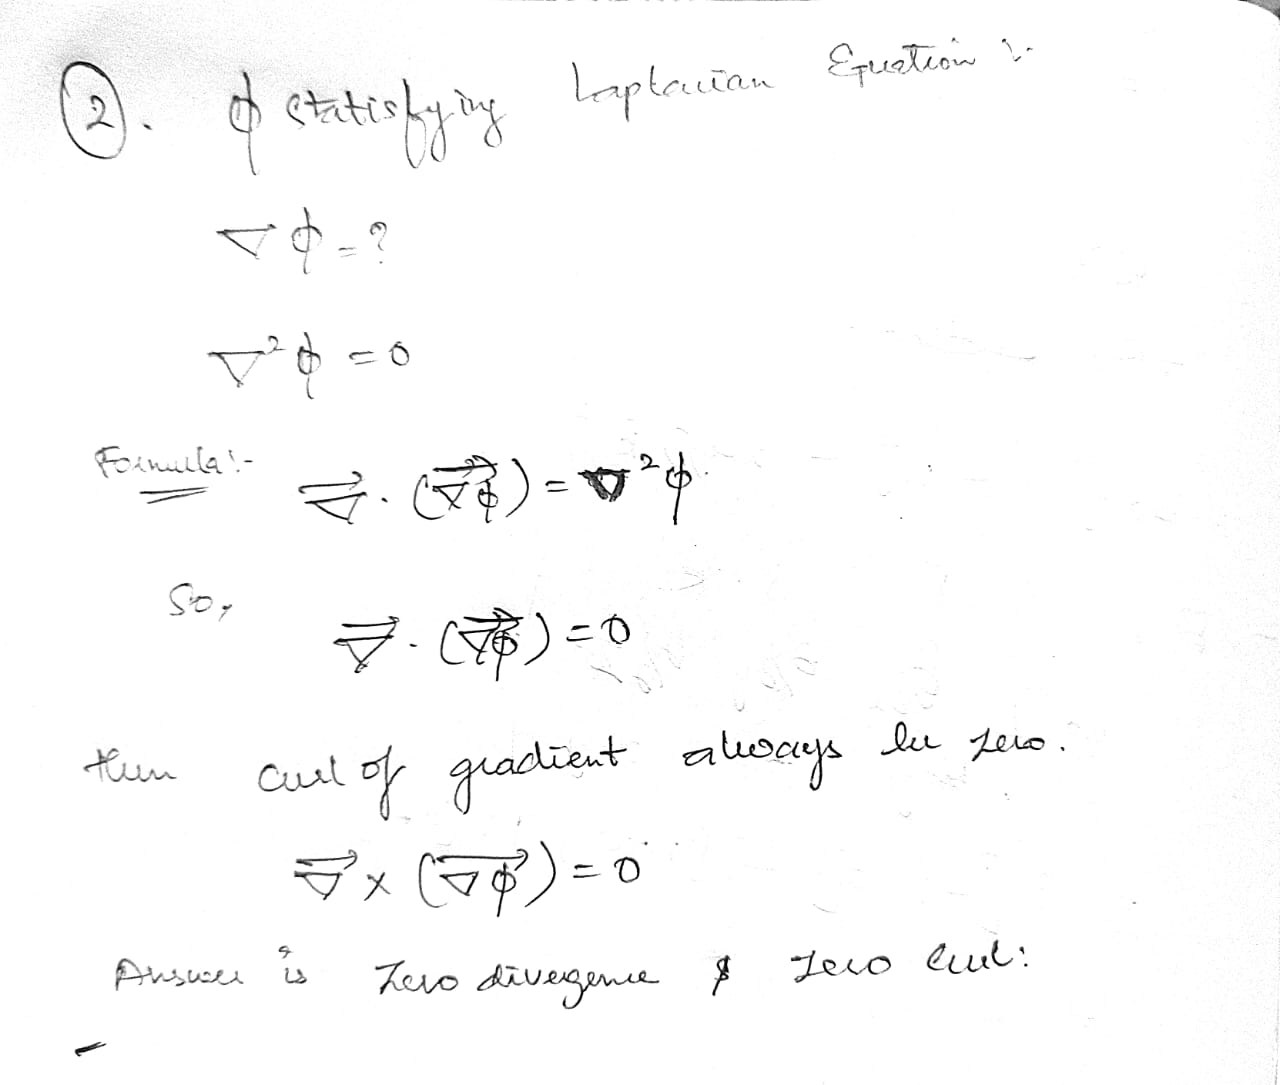 ②. ϕ statisfying Laplacian Equation :-
∇ϕ = ?
∇²ϕ = 0
Formula :-
∇⃗ . (∇⃗ϕ⃗) = ∇²ϕ
So,
∇⃗ . (∇⃗ϕ⃗) = 0
then curl of gradient always be zero.
∇⃗ × (∇ϕ⃗) = 0
Answer is Zero divergence & zero curl: